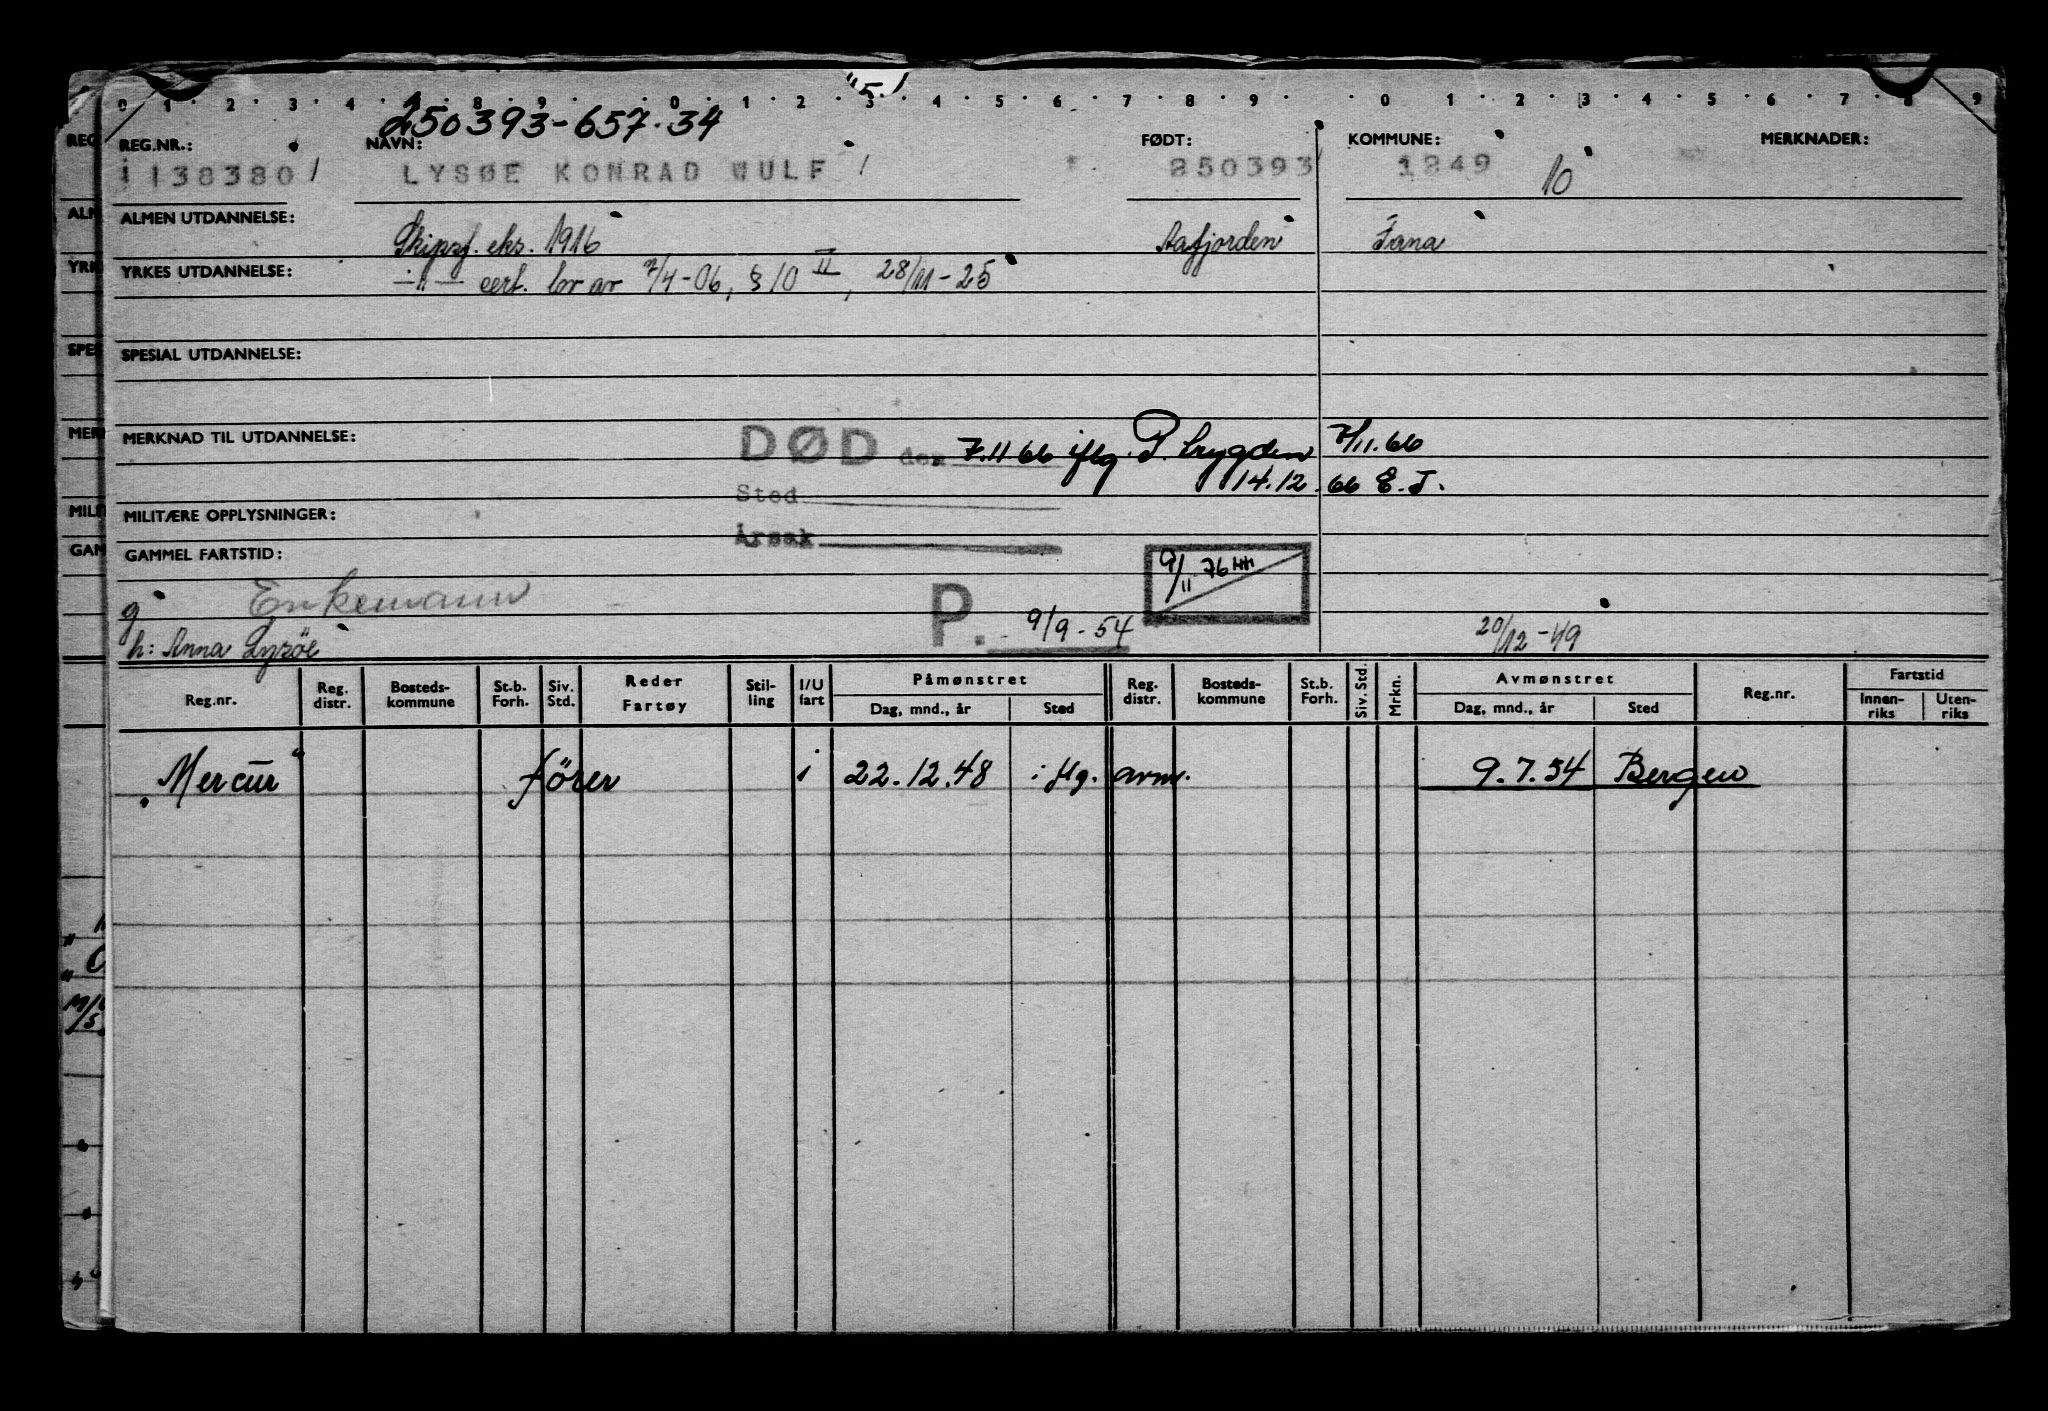 "5.1
0 1 2 3 4 8 9 0 1 2 3 4 5 6 7 8 9 0 1 2 3 4 5 6 7 8 9
250393-657.34
REG.NR.: NAVN: FØDT: KOMMUNE: MERKNADER:
1138380 LYSØE KONRAD WULF 250393 1249 10
ALMEN UTDANNELSE: Skipsf. eks. 1916 Aafjorden Fana
YRKES UTDANNELSE: —"— cert. lov av 7/4-06, § 10 II, 28/11-25
SPESIAL UTDANNELSE:
MERKNAD TIL UTDANNELSE: DØD den 7.11.66 iflg. P. trygden 7/11.66
Sted 14.12.66 E.J.
MILITÆRE OPPLYSNINGER:
Årsak
GAMMEL FARTSTID: 9/11 76 HH
g Enkemann P. 9/9-54
h: Anna Lysöe 20/12-49
Reg.nr. Reg. distr. Bosteds-kommune St.b. Forh. Siv. Std. Reder Fartøy Stil-ling I/U fart Påmønstret Dag, mnd., år Sted Reg. distr. Bosteds-kommune St.b. Forh. Siv. Std. Mrkn. Avmønstret Dag, mnd., år Sted Reg.nr. Fartstid Innen-riks Uten-riks
"Mercur" förer i 22.12.48 iflg. avm. 9.7.54 Bergen